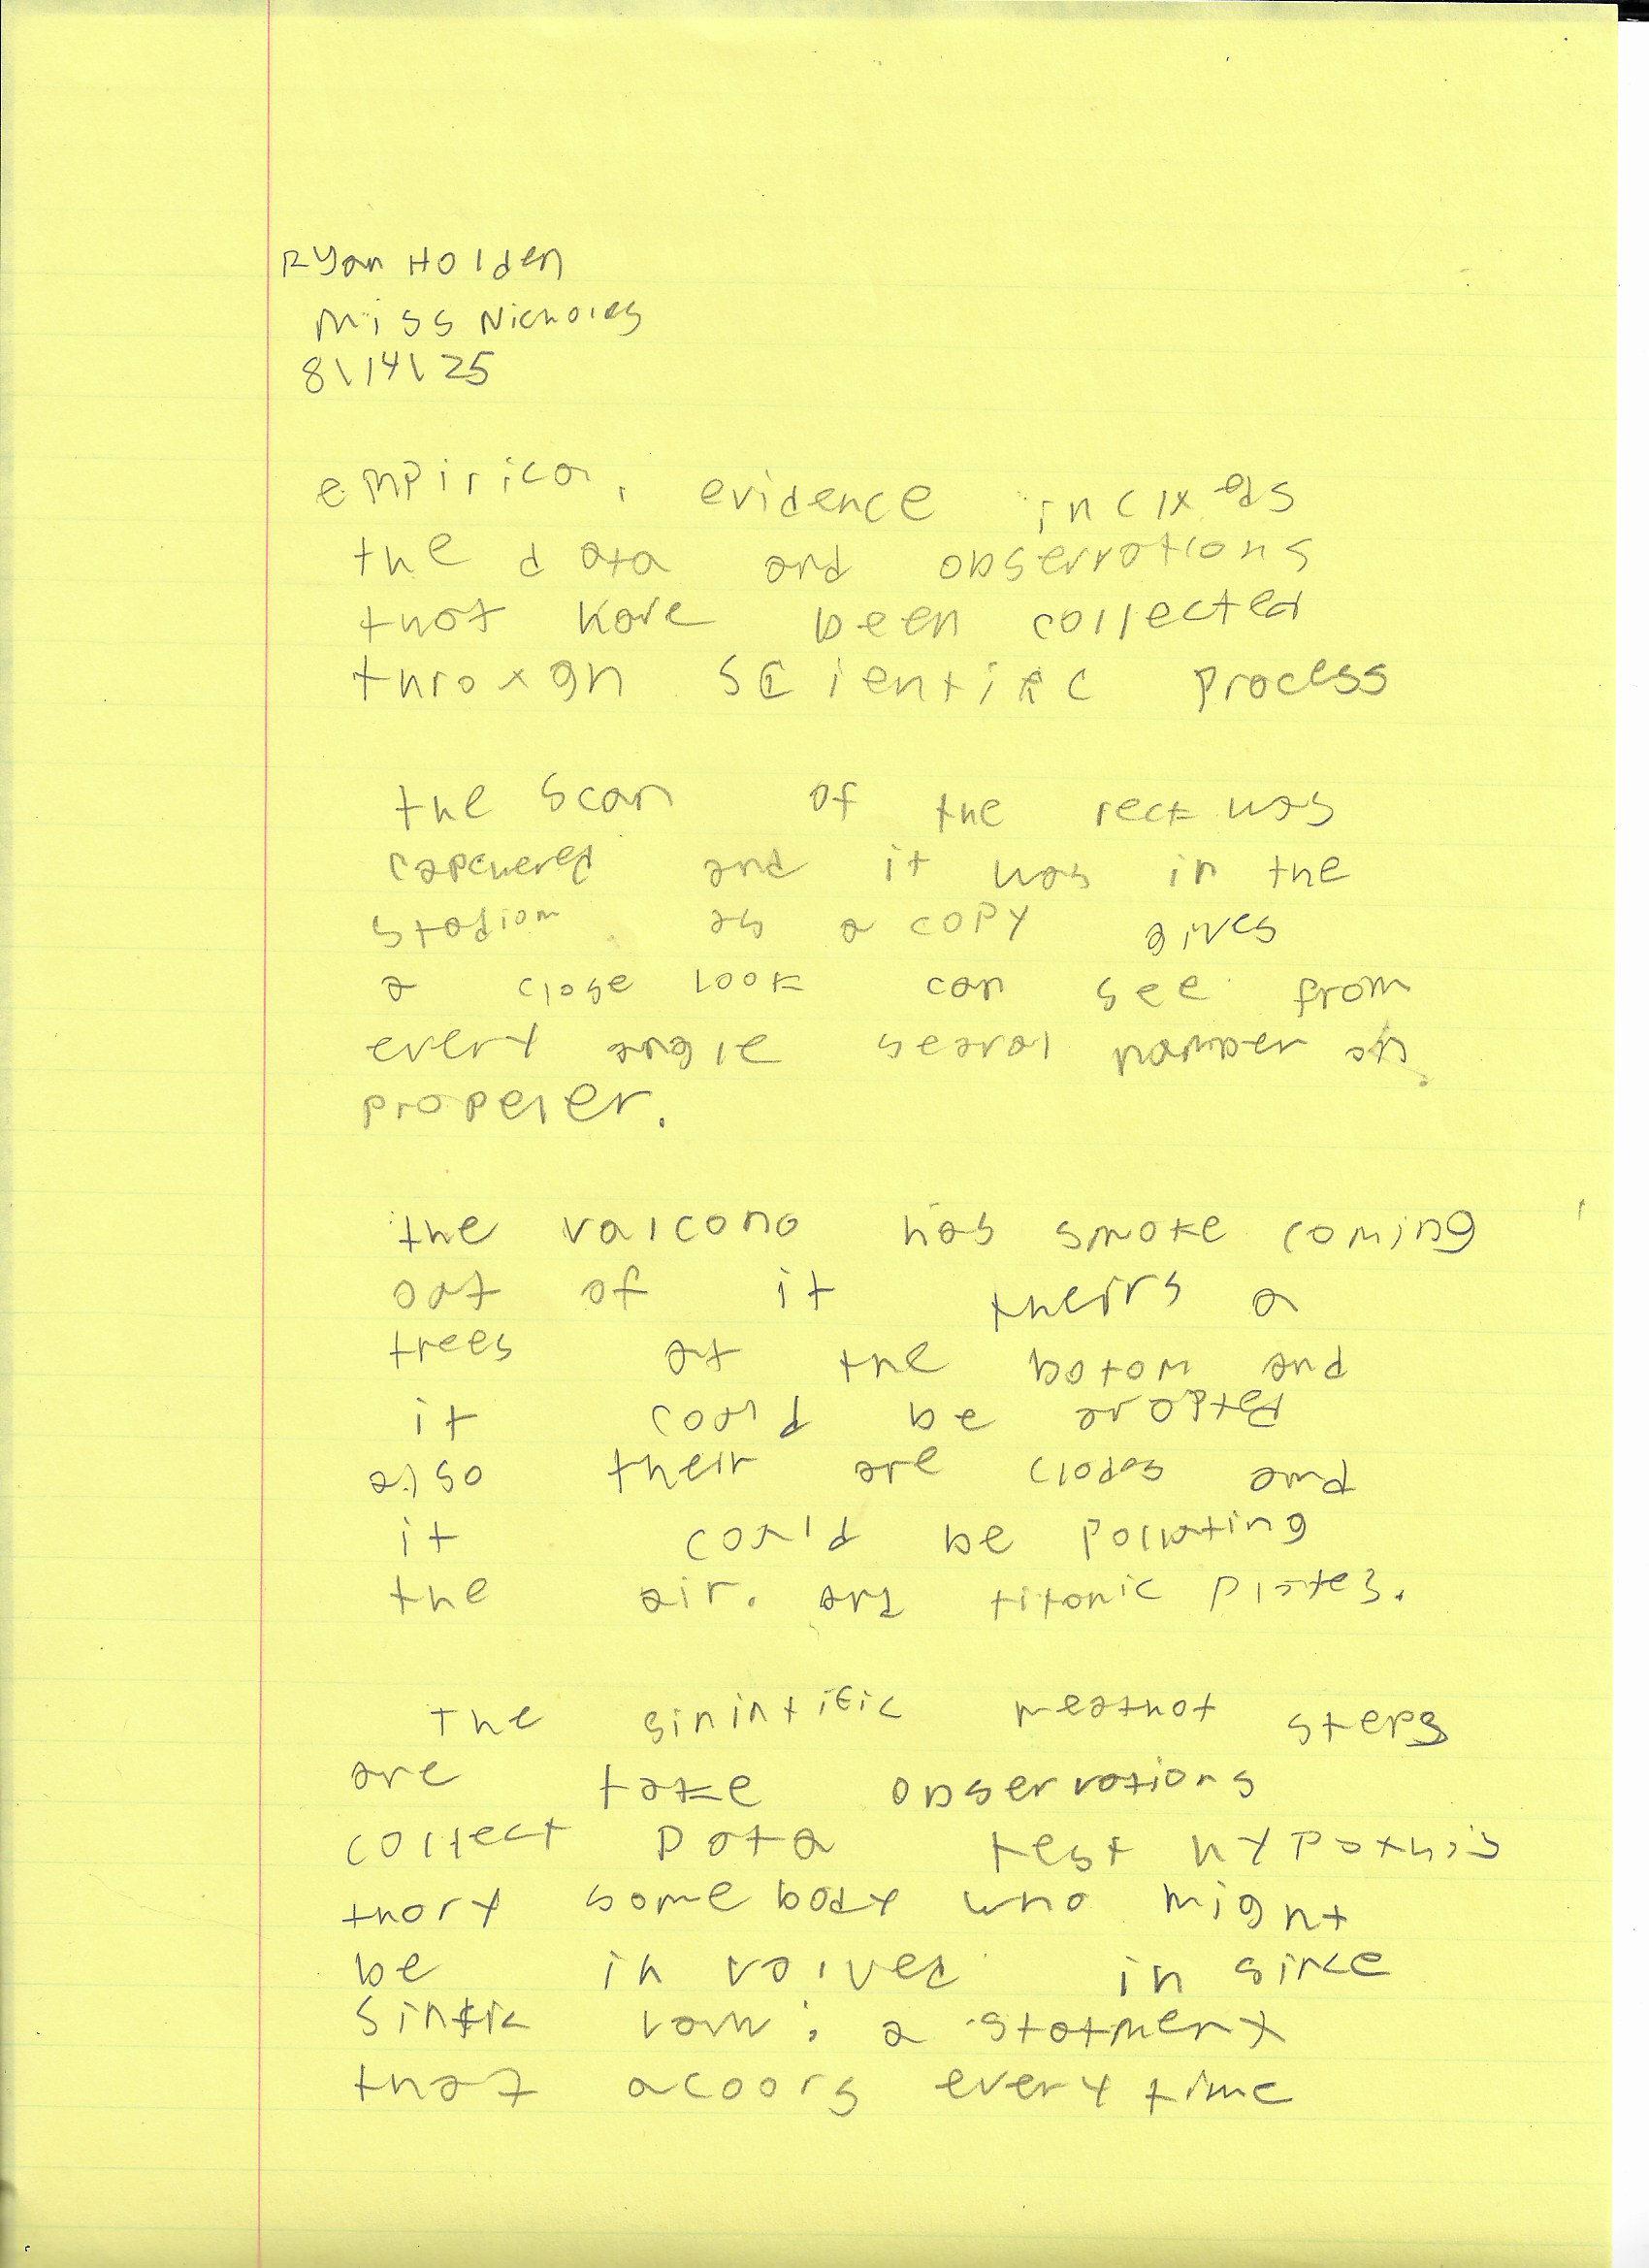 Ryan Holden
Miss Nicholes
8\14\25
empirical evidence inclueds
the data and observations
that have been collected
through scientific process
the scan of the reck was
capchered and it was in the
stadiom as a copy gives
a close look can see from
every angle searal number of
propeler.
the valcono has smoke coming
out of it theirs a
trees at the botom and
it could be erupted
also their are clouds and
it could be polluting
the air. and titonic plates.
The sinintific meathot steps
are take observations
collect Data test hypothis
thory somebody who might
be in volved in since
sintfic law: a statment
that acoors every time